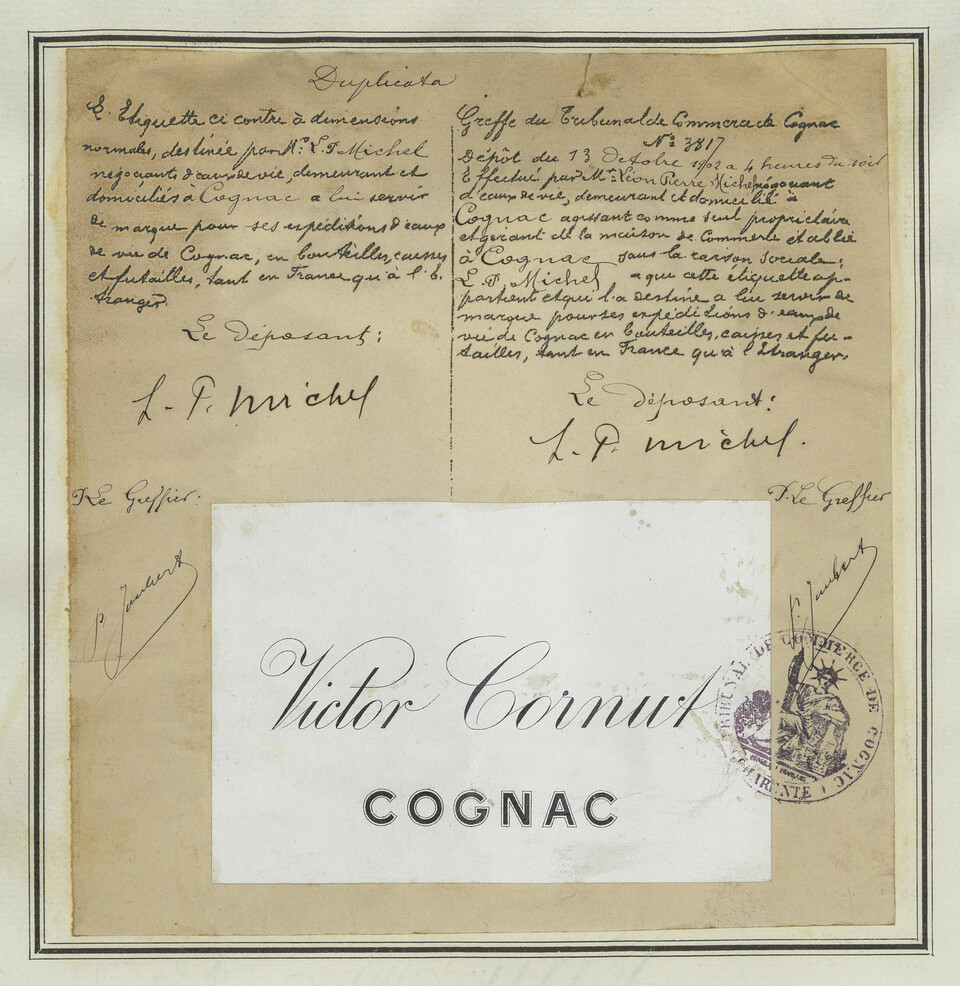 Duplicata
L'Etiquette ci contre à dimensions
normales, destinée par Mr. L. P. Michel
négociants d'eaux de vie, demeurant et
domiciliés à Cognac a lui servir
de marque pour ses expéditions d'eaux
de vie de Cognac, en bouteilles, caisses
et futailles, tant en France qu'à l'E.
tranger.
Le déposant:
L. P. Michel
P. Le Greffier:
P. Joubert
Greffe du Tribunal de Commerce de Cognac
No 3817
Dépôt du 13 Octobre 1902 a 4 heures du soir
Effectué par Mr. Léon Pierre Michel négociant
d'eaux de vie, demeurant et domicilié à
Cognac agissant comme seul propriétaire
et gérant de la maison de Commerce établie
à Cognac sous la raison sociale:
L. P. Michel a que cette étiquette ap-
partient et qu'il l'a destine a lui servir de
marque pour ses expéditions d'eaux de
vie de Cognac en bouteilles, caisses et fu-
tailles, tant en France qu'à l'Etranger.
Le déposant:
L. P. Michel.
P. Le Greffier
P. Joubert
Victor Cornut
COGNAC
TRIBUNAL DE COMMERCE DE COGNAC
CHARENTE